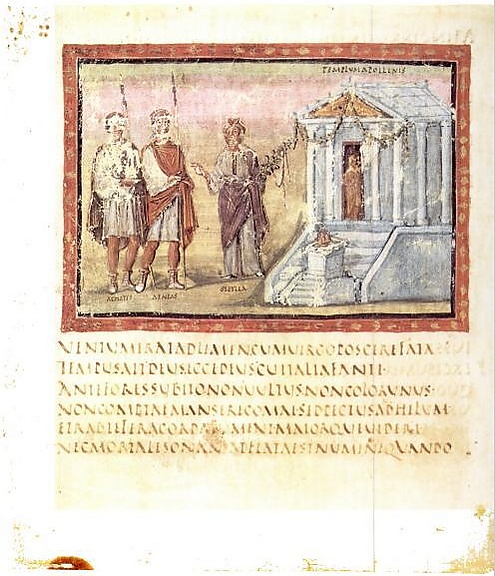 TEMPLUMAPOLLENIS
ACHATES AENEAS SIBYLLA
VENTUMERATADLIMENCUMVIRGOPOSCEREFATA
TEMPUSAITDEUSECCEDEUSCUITALIAFANTI
ANTEFORESSUBITONONVULTUSNONCOLORUNUS
NONCOMPTAEMANSERECOMAESEDPECTUSANHELUM
ETRABIEFERACORDATUMENTMAIORQUEVIDERI
NECMORTALESONANSADFLATAESTNUMINEQUANDO